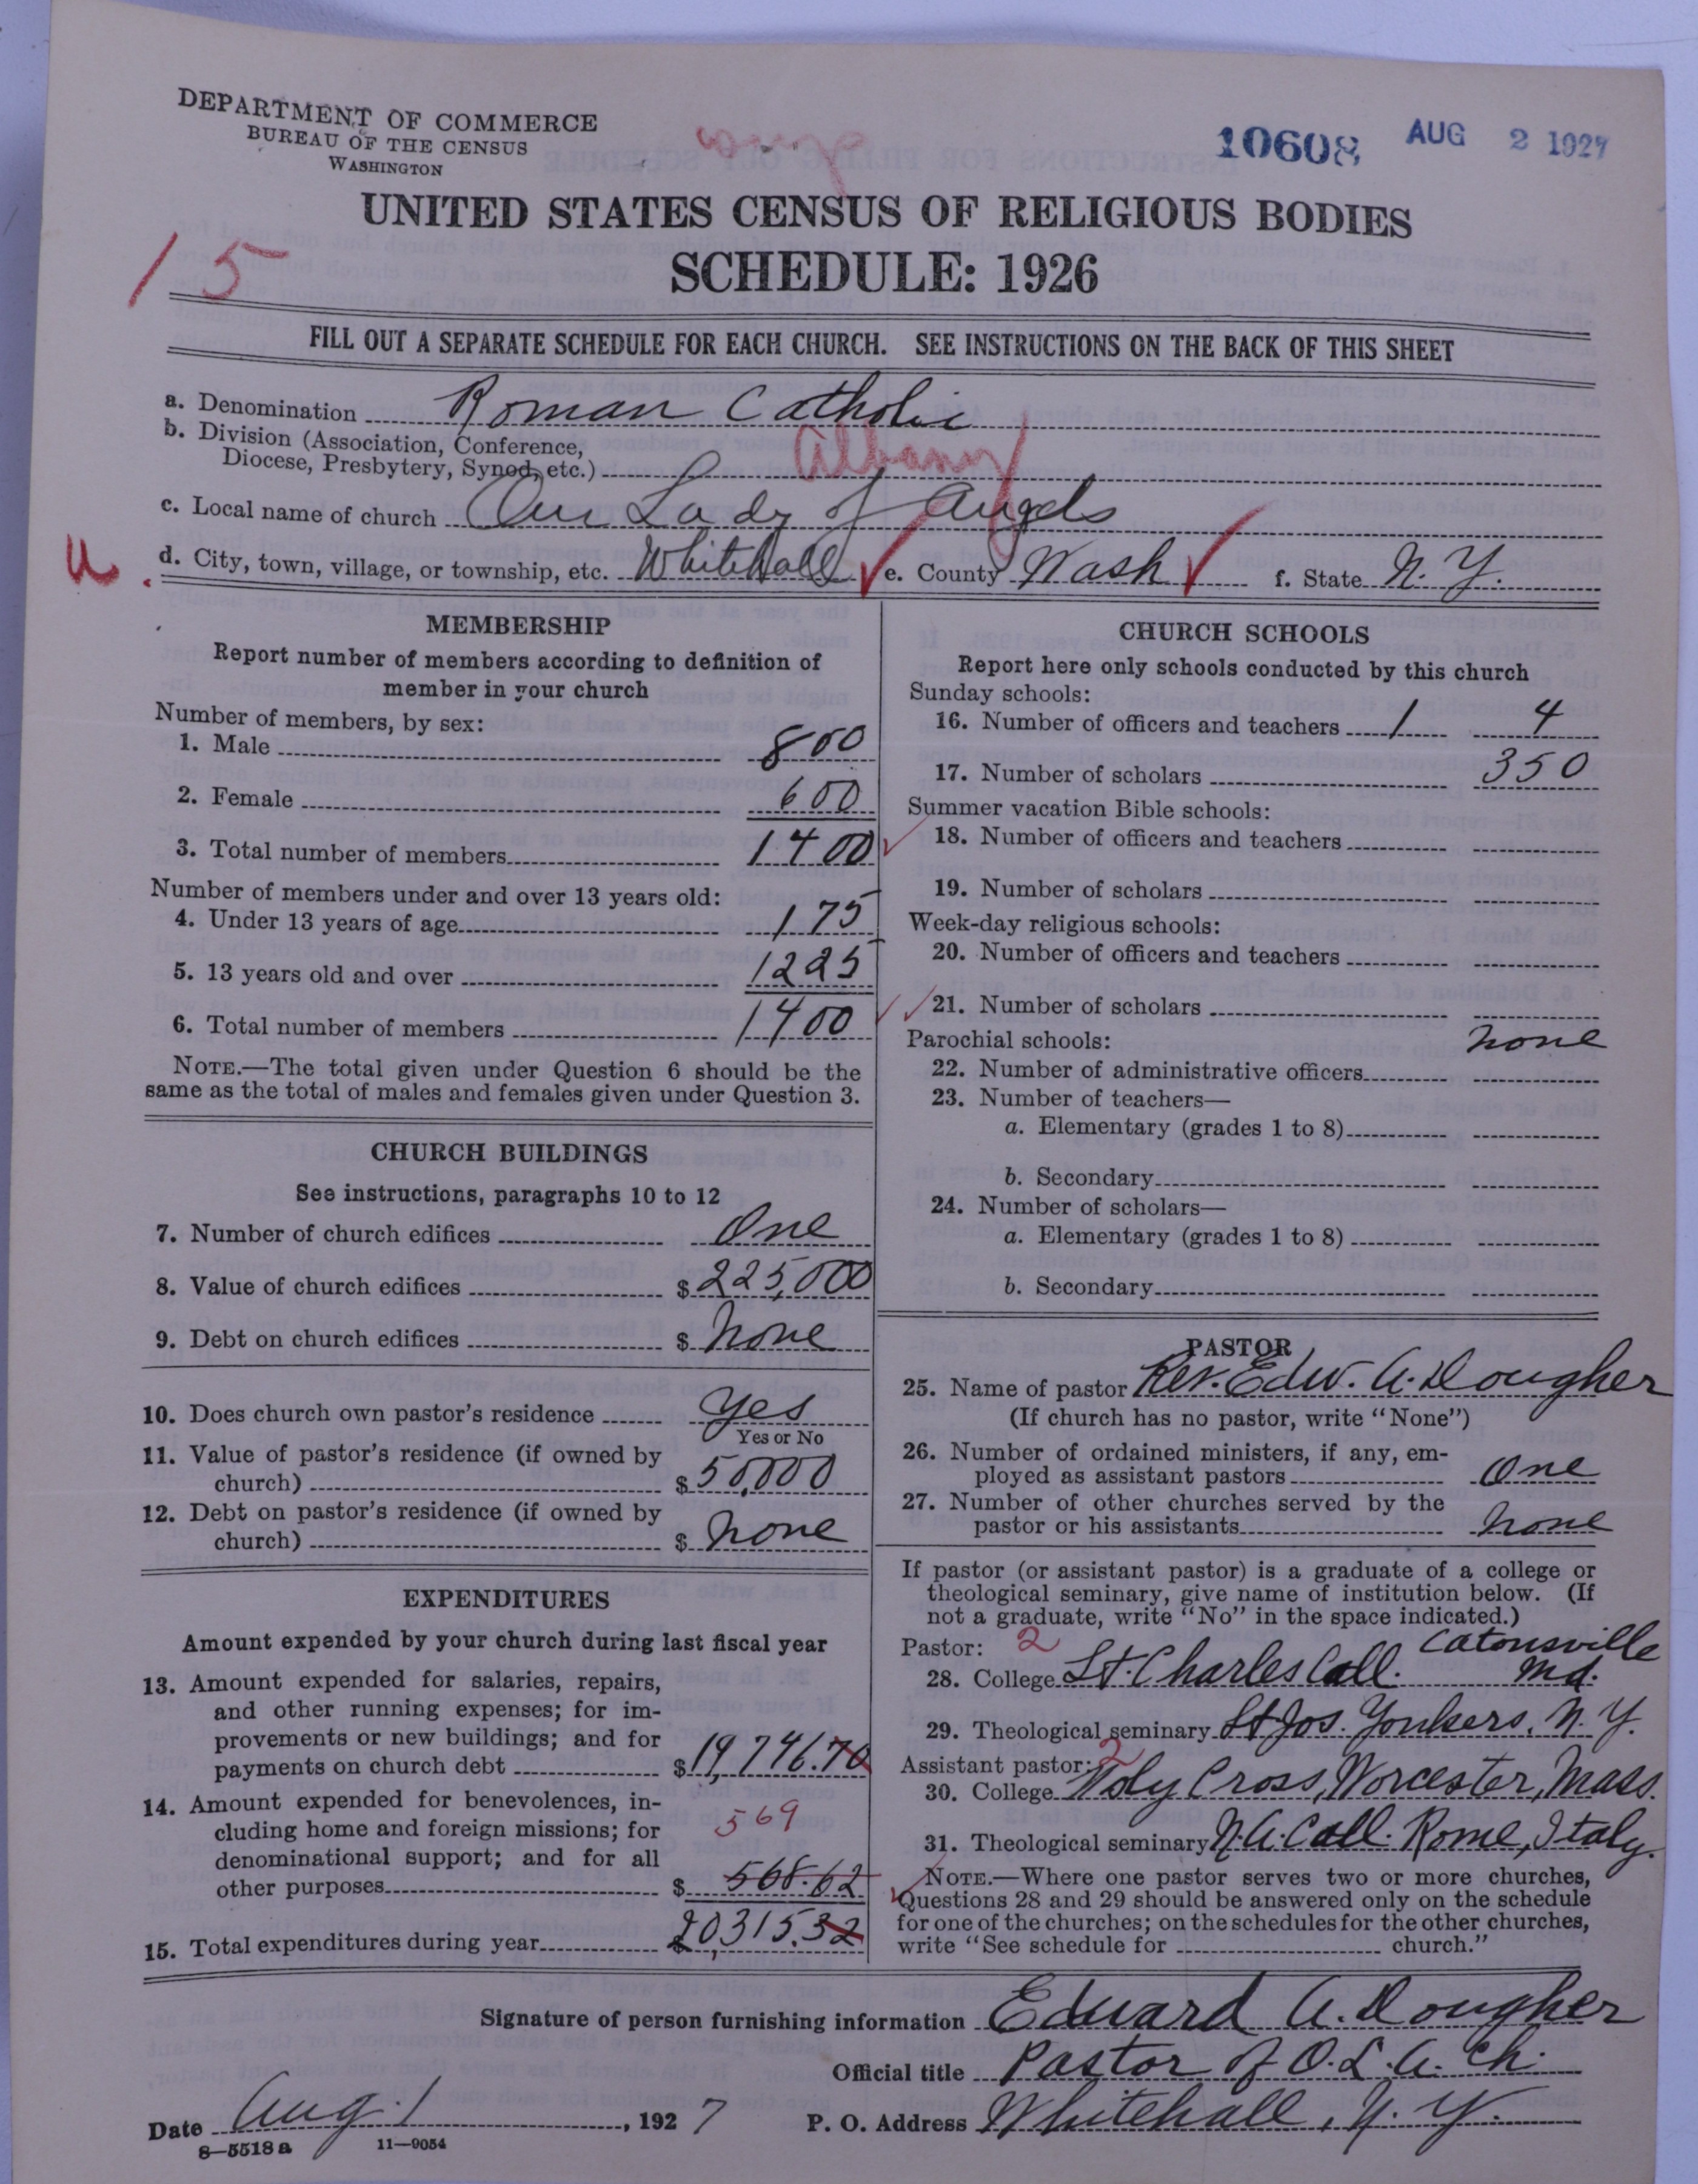 DEPARTMENT OF COMMERCE
BUREAU OF THE CENSUS
WASHINGTON
10608 AUG 2 1927
UNITED STATES CENSUS OF RELIGIOUS BODIES
SCHEDULE: 1926
15
FILL OUT A SEPARATE SCHEDULE FOR EACH CHURCH. SEE INSTRUCTIONS ON THE BACK OF THIS SHEET
a. Denomination Roman Catholic
b. Division (Association, Conference,
Diocese, Presbytery, Synod, etc.) Albany
c. Local name of church Our Lady of Angels
d. City, town, village, or township, etc. Whitehall e. County Wash f. State N. Y.
MEMBERSHIP
Report number of members according to definition of
member in your church
Number of members, by sex:
1. Male 800
2. Female 600
3. Total number of members 1400
Number of members under and over 13 years old:
4. Under 13 years of age 175
5. 13 years old and over 1225
6. Total number of members 1400
NOTE.—The total given under Question 6 should be the
same as the total of males and females given under Question 3.
CHURCH BUILDINGS
See instructions, paragraphs 10 to 12
7. Number of church edifices One
8. Value of church edifices $225,000
9. Debt on church edifices $ None
10. Does church own pastor's residence Yes
Yes or No
11. Value of pastor's residence (if owned by
church) $50,000
12. Debt on pastor's residence (if owned by
church) $ None
EXPENDITURES
Amount expended by your church during last fiscal year
13. Amount expended for salaries, repairs,
and other running expenses; for im-
provements or new buildings; and for
payments on church debt $19,746.70
14. Amount expended for benevolences, in-
cluding home and foreign missions; for 569
denominational support; and for all
other purposes $ 568.62
15. Total expenditures during year 20,315.32
CHURCH SCHOOLS
Report here only schools conducted by this church
Sunday schools:
16. Number of officers and teachers 1 4
17. Number of scholars 350
Summer vacation Bible schools:
18. Number of officers and teachers
19. Number of scholars
Week-day religious schools:
20. Number of officers and teachers
21. Number of scholars
Parochial schools: None
22. Number of administrative officers
23. Number of teachers—
a. Elementary (grades 1 to 8)
b. Secondary
24. Number of scholars—
a. Elementary (grades 1 to 8)
b. Secondary
PASTOR
25. Name of pastor Rev. Edw. A. Dougher
(If church has no pastor, write "None")
26. Number of ordained ministers, if any, em-
ployed as assistant pastors One
27. Number of other churches served by the
pastor or his assistants None
If pastor (or assistant pastor) is a graduate of a college or
theological seminary, give name of institution below. (If
not a graduate, write "No" in the space indicated.)
Pastor: 2 Catonsville
28. College St. Charles Coll. Md.
29. Theological seminary St Jos. Yonkers, N. Y.
Assistant pastor: 2
30. College Holy Cross, Worcester, Mass.
31. Theological seminary N. A. Coll. Rome, Italy.
NOTE.—Where one pastor serves two or more churches,
Questions 28 and 29 should be answered only on the schedule
for one of the churches; on the schedules for the other churches,
write "See schedule for church."
Signature of person furnishing information Edward A. Dougher
Official title Pastor of O. L. A. Ch.
Date Aug. 1, 1927 P. O. Address Whitehall, N. Y.
8—5518 a 11—9054